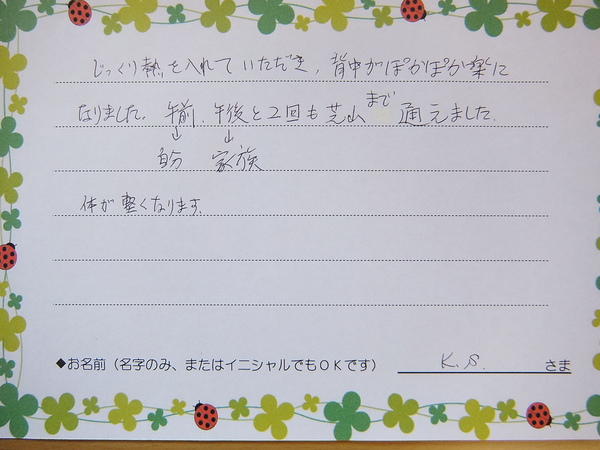 じっくり熱を入れていただき、背中がぽかぽか楽に
なりました。午前、午後と2回も芝山まで通えました。
↓ ↓
自分 家族
体が軽くなります。
◆お名前（名字のみ、またはイニシャルでもOKです） K.S. さま